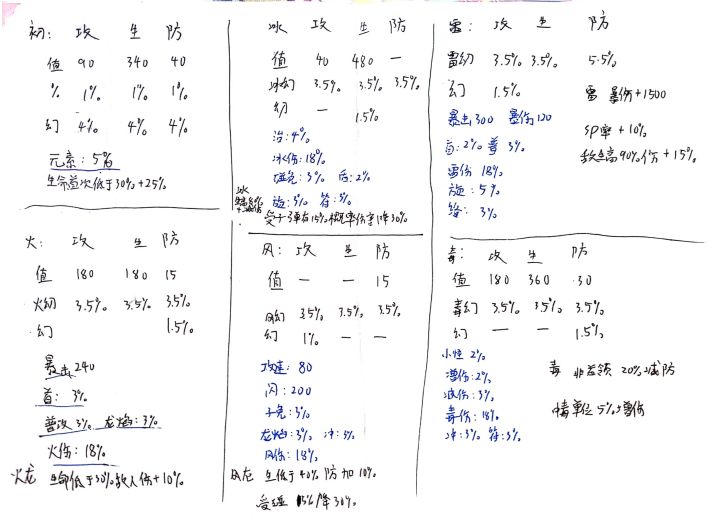 初: 攻 生 防
值 90 340 40
% 1% 1% 1%
幻 4% 4% 4%
元素: 5%
生命首次低于30%+25%
冰 攻 生 防
值 40 480 —
冰幻 3.5% 3.5% 3.5%
幻 — 1.5%
治: 4%
冰伤: 18%
爆免: 3% 后: 2%
旋: 3% 符: 3%
受十字军有15%概率伤害降30%
雷: 攻 生 防
雷幻 3.5% 3.5% 5.5%
幻 1.5%
雷 暴伤+1500
暴击300 暴伤120
SP率+10%
首: 2% 普 3%
敌生高90%伤+15%
雷伤 18%
旋: 5%
络: 3%
火: 攻 生 防
值 180 180 15
火幻 3.5% 3.5% 3.5%
幻 1.5%
暴击240
首: 3%
普攻 3% 龙焰: 3%
火伤: 18%
火龙 生命低于30%敌人伤+10%
风: 攻 生 防
值 — — 15
风幻 3.5% 3.5% 3.5%
幻 1% — —
攻速: 80
闪: 200
十免: 3%
龙焰: 3% 冲: 3%
风伤: 18%
风龙 生低于40%防加10%
受 15%降30%
毒: 攻 生 防
值 180 360 30
毒幻 3.5% 3.5% 3.5%
幻 — — 1.5%
小怪 2%
毒 非首领 20%减防
增伤: 2%
减伤: 3%
单位5%增伤
毒伤: 18%
冲: 3% 符: 3%